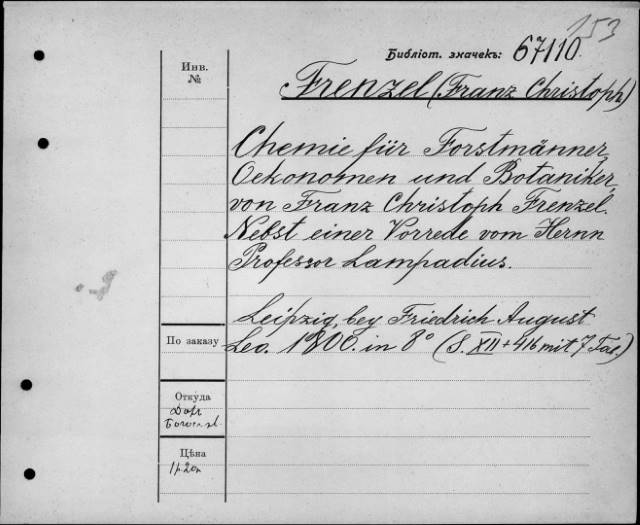 153
Библіот. значекъ: 67110.
Инв.
№
Frenzel (Franz Christoph)
Chemie für Forstmänner,
Oekonomen und Botaniker,
von Franz Christoph Frenzel.
Nebst einer Vorrede vom Hernn
Professor Lampadius.
Leipzig, bey Friedrich August
Leo. 1800. in 8° (S. XII + 416 mit 7 Taf.)
По заказу
Откуда
Цѣна